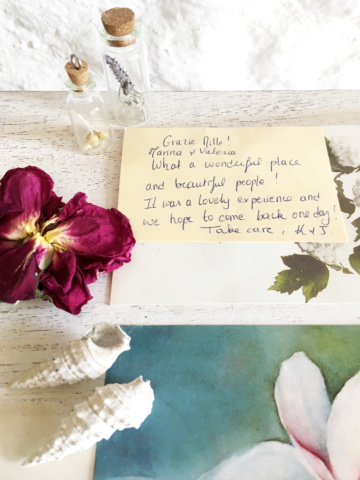 Grazie Mille!
Marina & Valeria
What a wonderful place
and beautiful people!
It was a lovely experience and
we hope to come back one day!
Take care, H & J